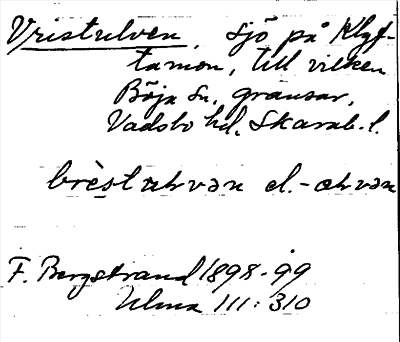 Vristulven, sjö på Klyf-
tamon, till vilken
Böja sn. gränsar,
Vadsbo hd. Skarab. l.
brèstuhvən el. -ohvən
F. Bergstrand 1898-99
Ulma 111:310